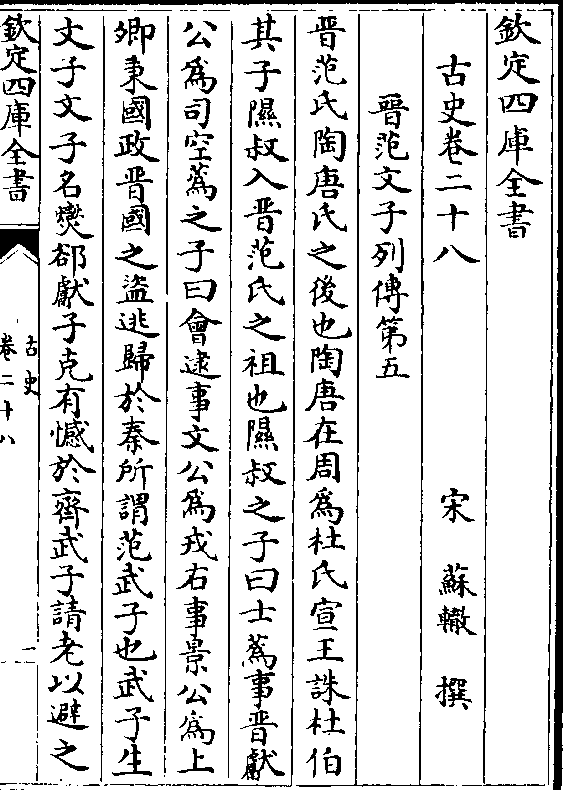 欽定四庫全書
古史卷二十八
宋 蘇轍 撰
晉范文子列傳第五
晉范氏陶唐氏之後也陶唐在周爲杜氏宣王誅杜伯
其子隰叔入晉范氏之祖也隰叔之子曰士蔿事晉獻
公爲司空蔿之子曰會逮事文公爲戎右事景公爲上
卿秉國政晉國之盜逃歸於秦所謂范武子也武子生
文子文子名爕郤獻子克有憾於齊武子請老以避之
欽定四庫全書
古史
卷二十八
一